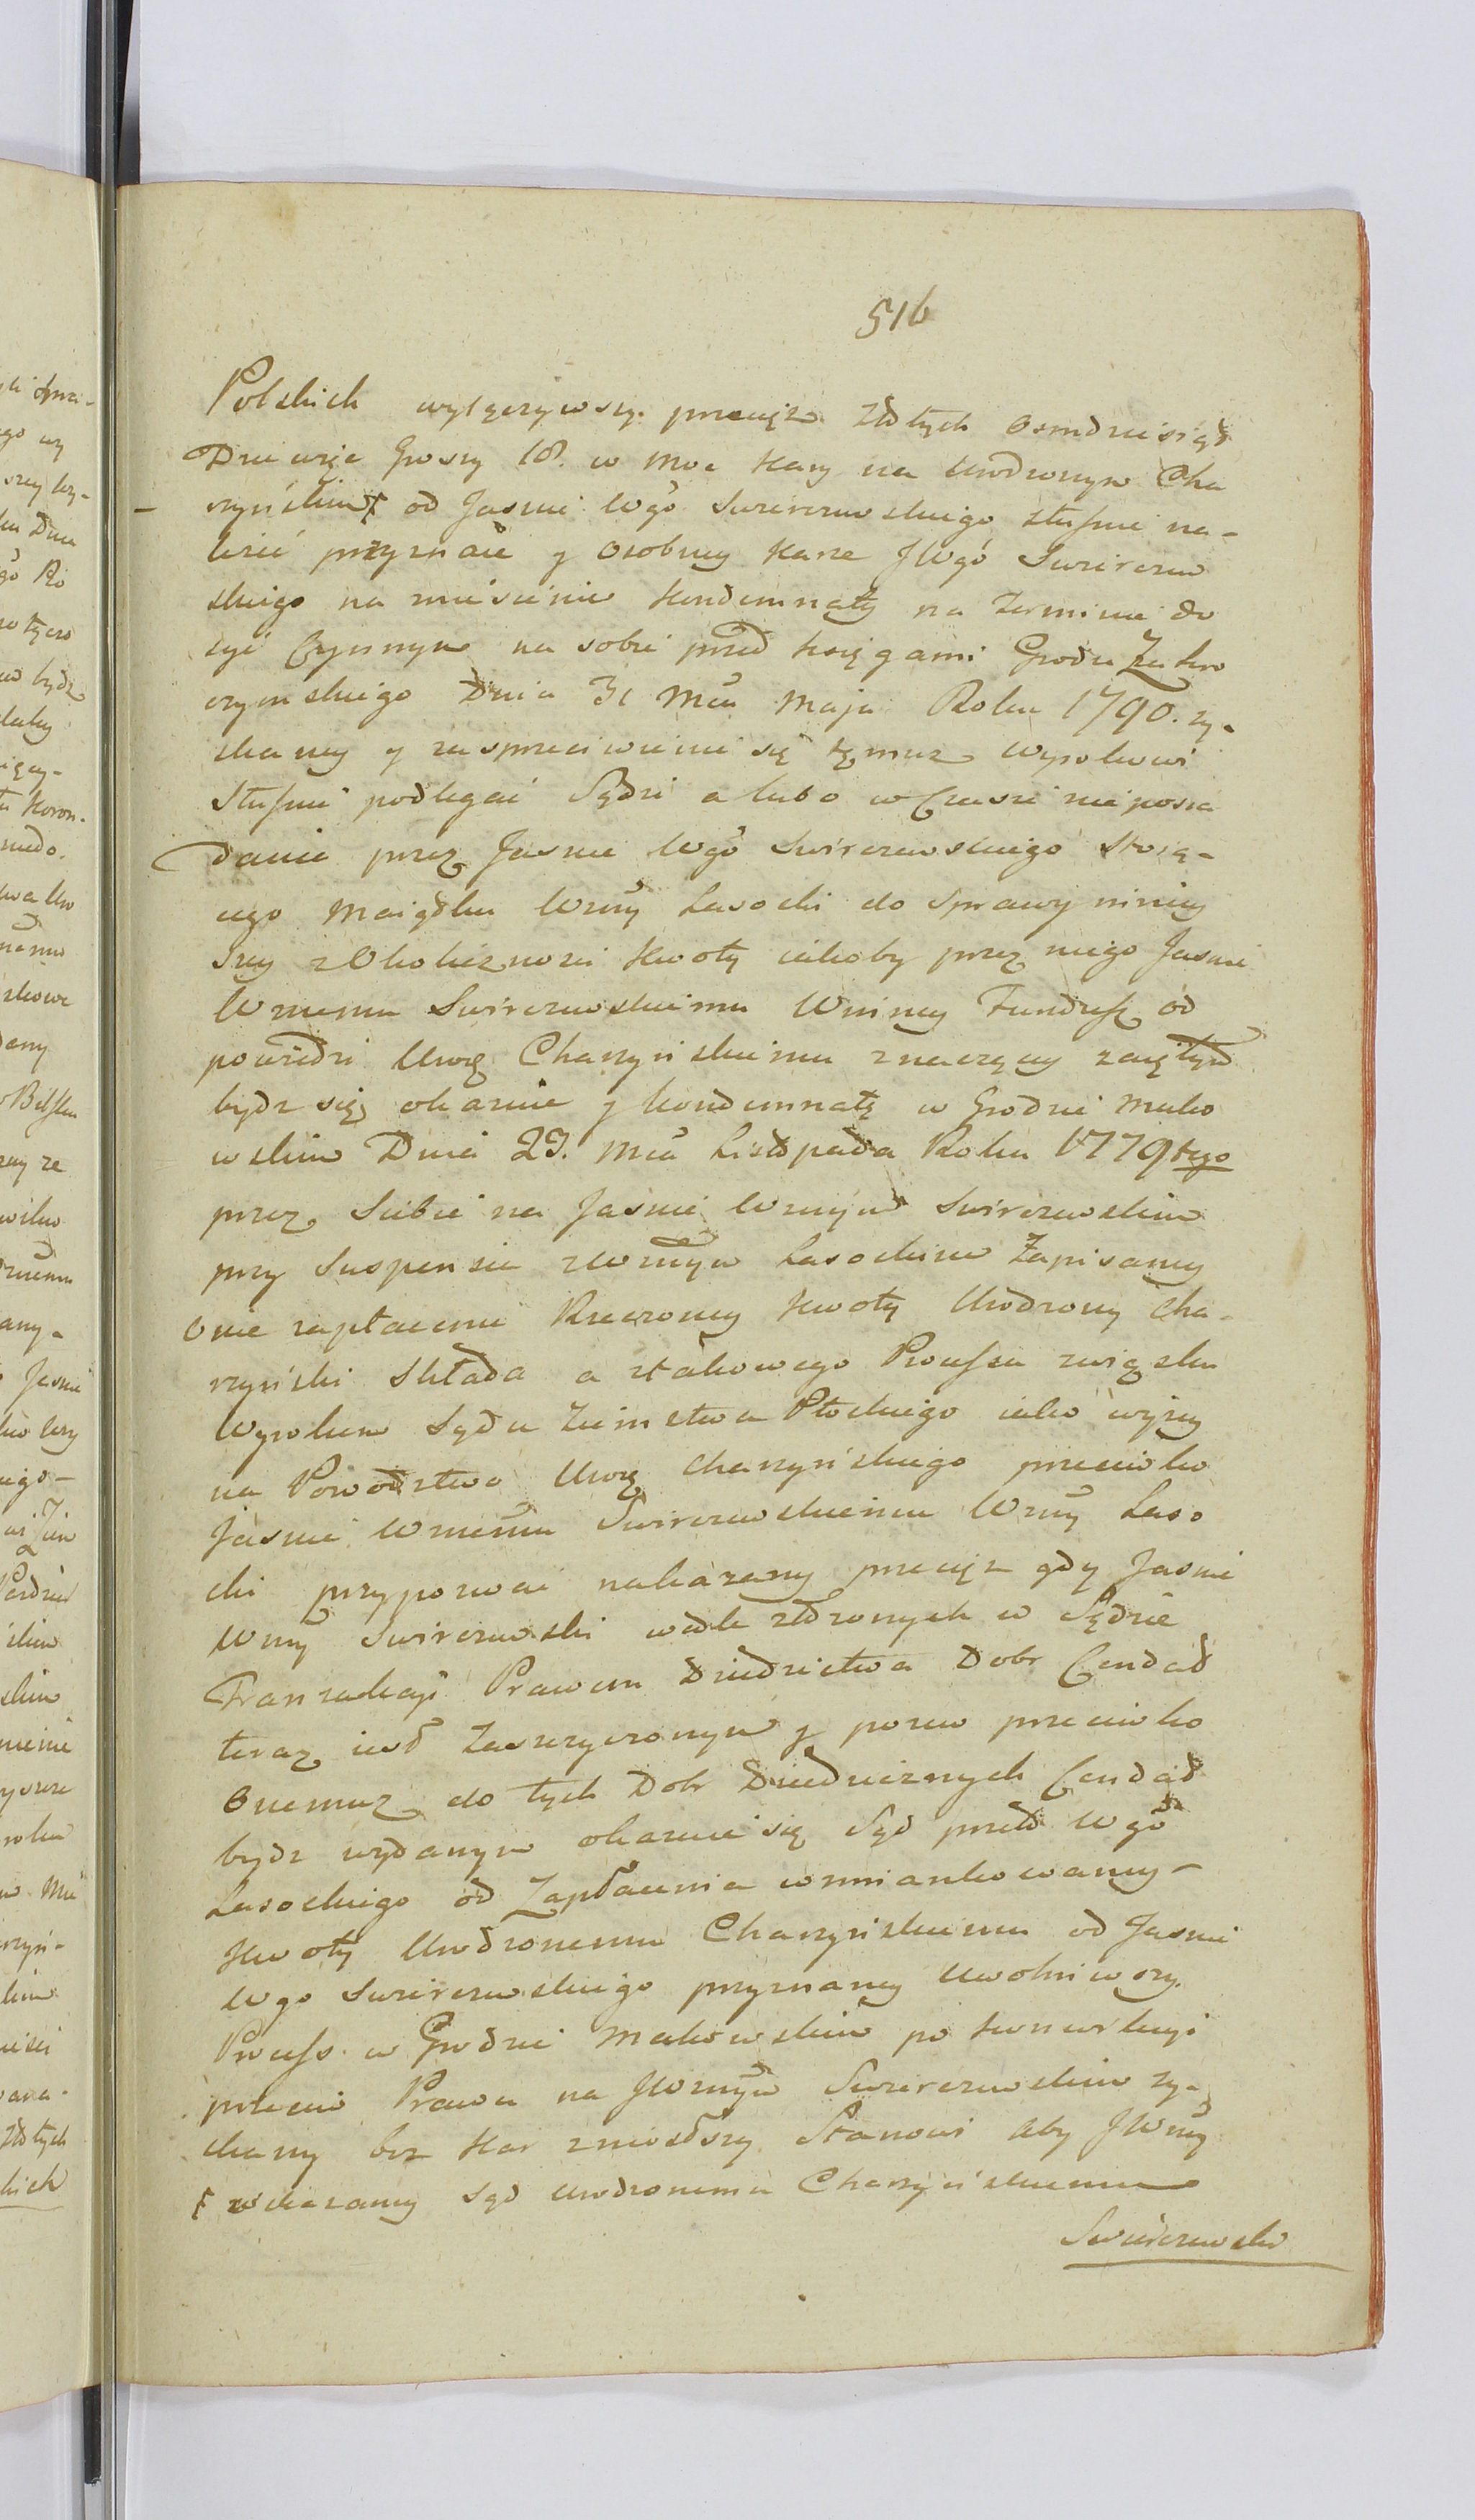 516
Polskich wyłączywszy przecięż Złotych Osmdziesiąt
Dziewięc Groszy 18. w moc kary na Urodzonym Cha
rzyńskim od Jasnie Wgo Swierczewskiego słusznie na-
leżeć przyznaie y osobney karze JWgo Swierczew
skiego na zniesienie kondemnaty na Terminie do
syć Czynnym na sobie przed Księgami Grodu Zakro
czymskiego Dnia 31 Mca Maja Roku 1790. zy-
skaney y za sprzeciwienie się temuż Wyrokowi
Słusznie podlegać Sądzi a lubo w Czasie nieposia
dania przez Jasnie Wgo Swierczewskiego stoią-
cego Maiątku Wzny Lasocki do Sprawy niniey
szey z Okoliczności kwoty iakoby przez niego Jasnie
Wznemu Swierczewskiemu Winney Fundusz od
powiedzi Urog Charzyńskiemu znaczącey zaciętym
bydz się okazuie y kondemnatę w Grodzie Mako
wskim Dnia 29. Mca Listopada Roku 1779tego
przez siebie na Jasnie Wznym Swierczewskim
przy Suspensie z Wznym Lasockim Zapisaney
Onie zapłacenie Rzeczoney kwoty Urodzony Cha-
rzyński Składa a z takowego Processu związku
Wyrokiem Sądu Ziemstwa Płockiego iako wyżey
na Powodztwo Urog Charzyńskiego przeciwko
Jasnie Wznemu Swierczewskiemu Wzny Laso
cki przypozwać nakazany przecięż gdy Jasnie
Wzny Swierczewski wedle złożonych w Sądzie
Tranzakcji Prawem Dziedzictwa Dobr Cendad
teraz iest Zaszczyconym y pozew przeciwko
Onemuż do tych Dobr Dziedzicznych Cendad
bydz wydanym okazuie się Sąd przeto Wgo
Lasockiego od Zapłacenia wzmiankowaney-
kwoty Urodzonemu Charzyńskiemu od Jasnie
Wgo Swierczewskiego przyznaney Uwolniwszy
Process w Grodzie Makowskim po
przeciw Prawu na JWznym Swierczewskim zy-
skany bez kar zniosłszy Stanowi aby JWzny
wskazaney Sąd Urodzonemu Charzyńskiemu
Swierczewski